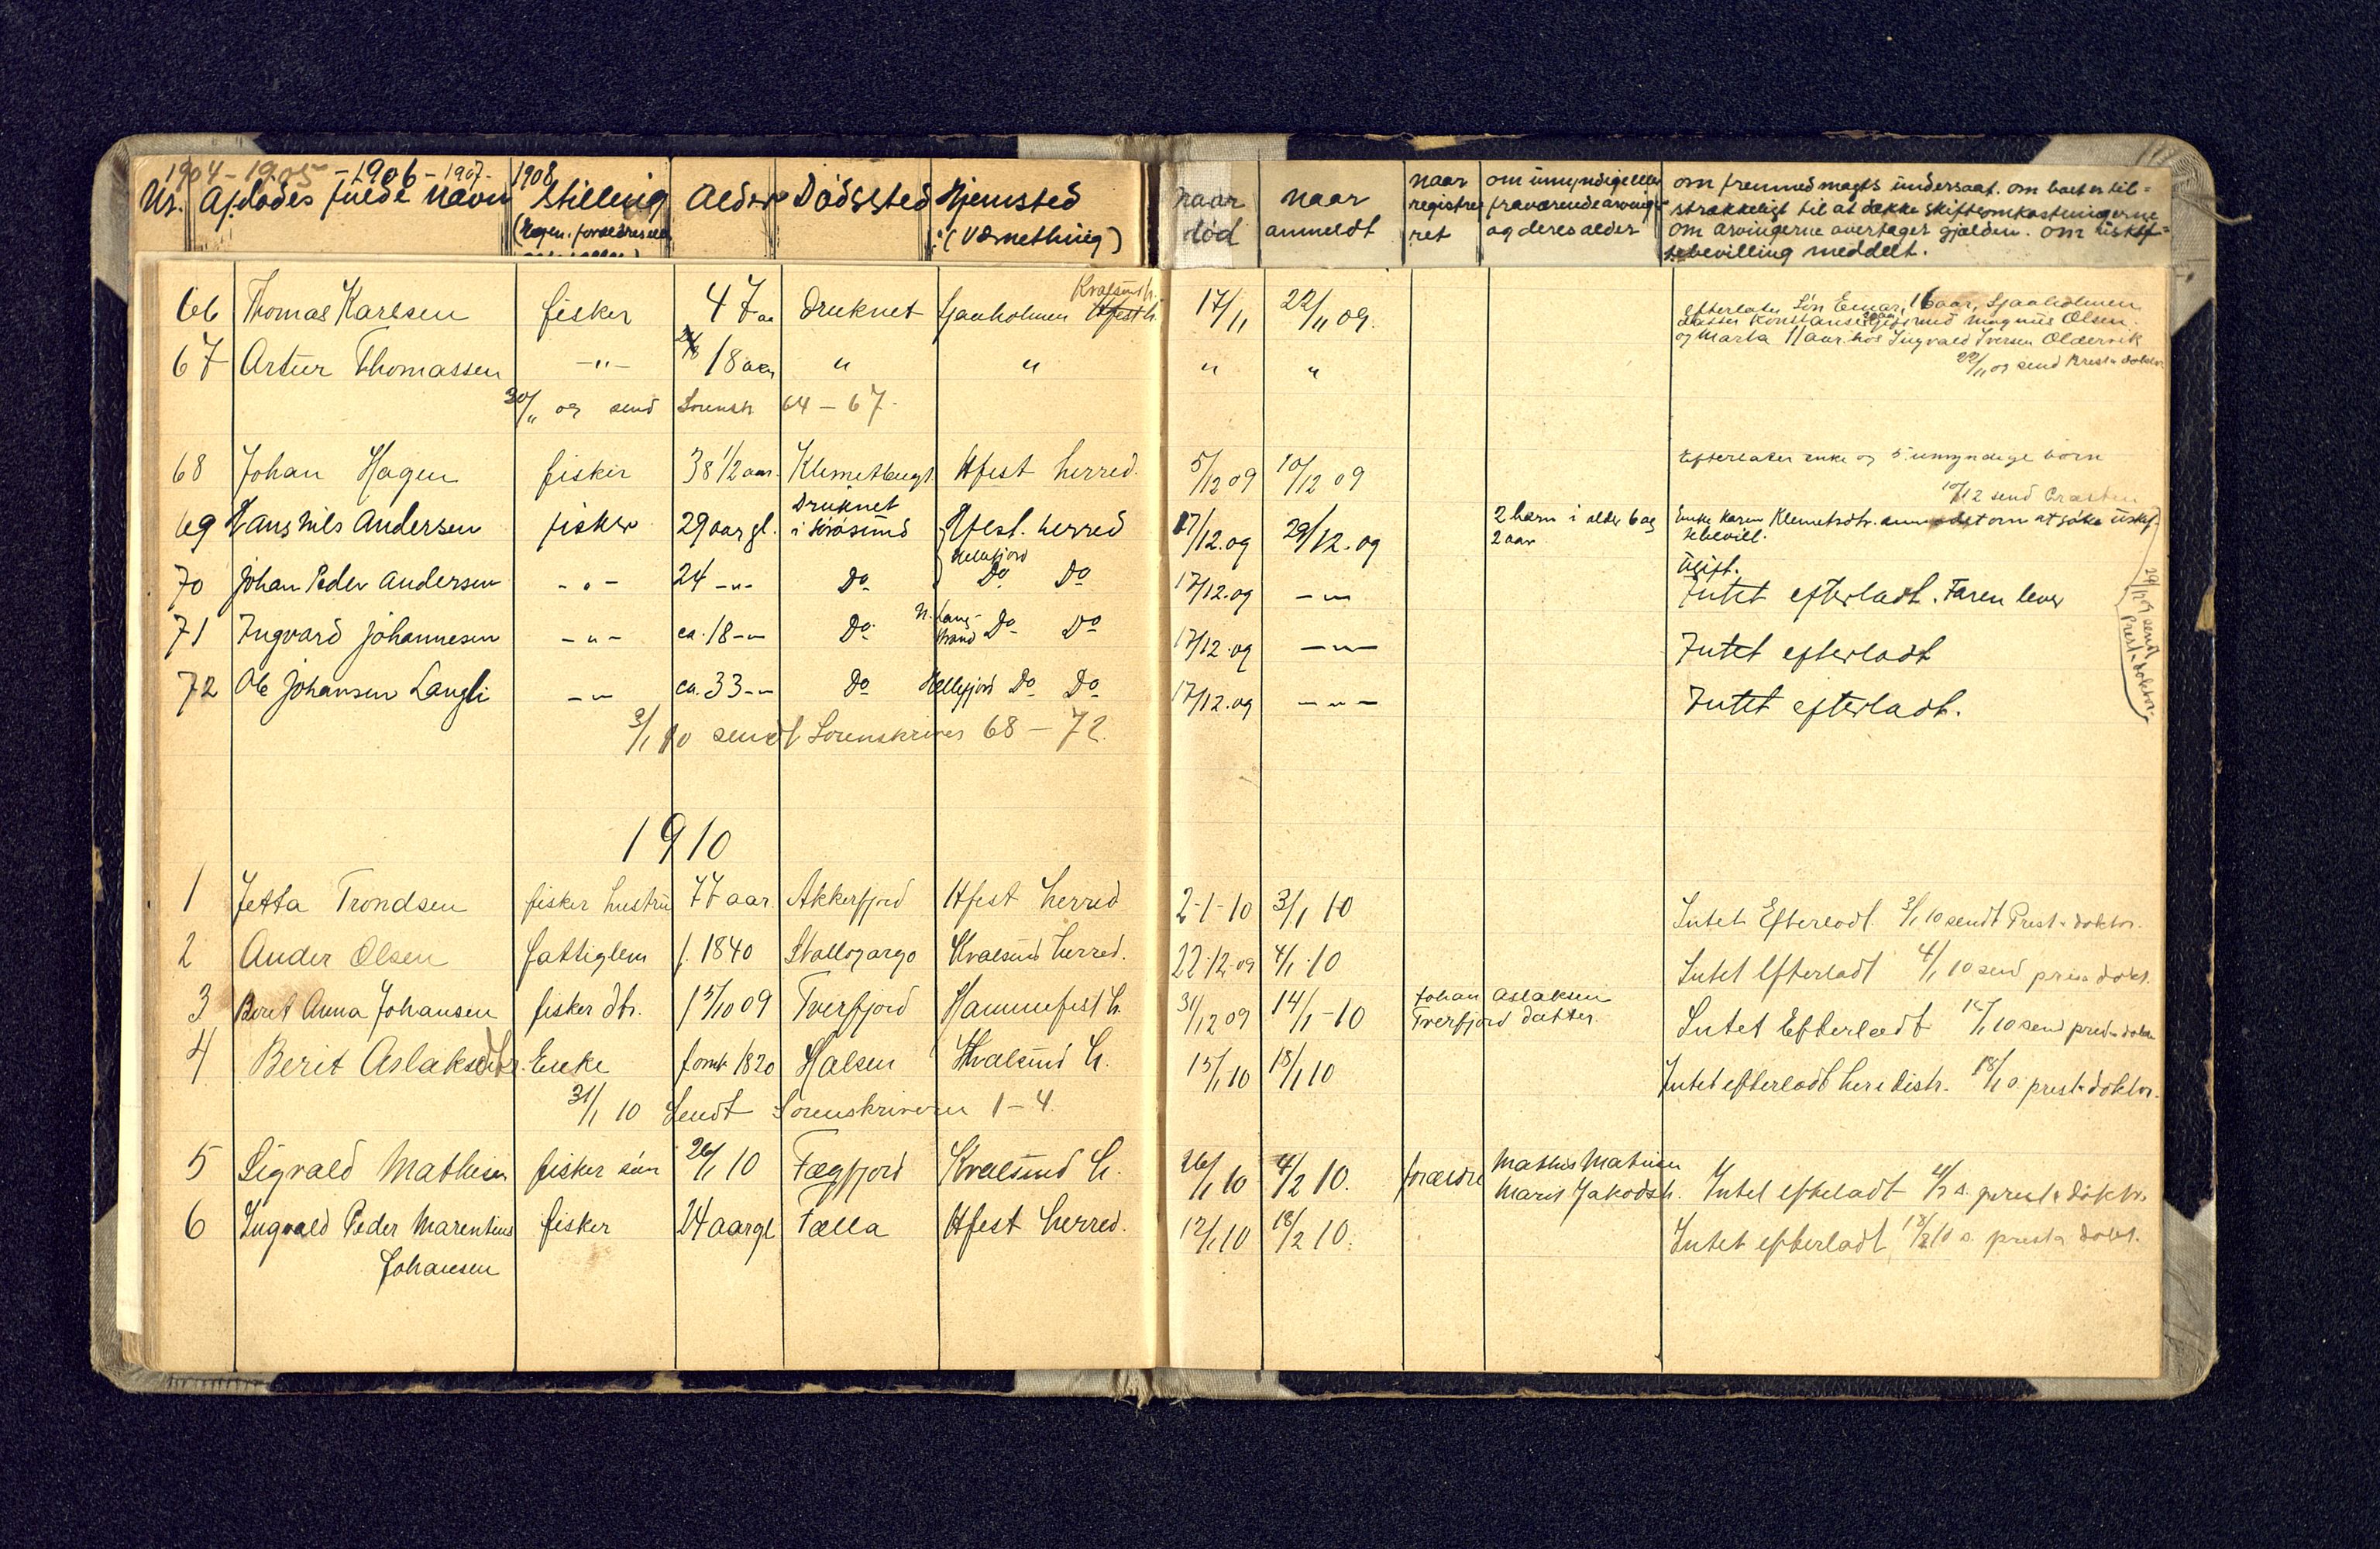 1904 - 1905 - 1906 - 1907 - 1908
Nr. Afdødes fulde navn Stilling Alder Dødssted Hjemsted naar død naar anmeldt naar registreret om umyndige eller fraværende arvinger og deres alder om fremmed magts undersaat. om boet er til=
(Værnething) strækkeligt til at dække skifteomkostningerne
om arvingerne overtager gjælden. om uskif=
tebevilling meddelt.
66 Thomas Karlsen fisker 47 aa Druknet Sjaaholmen Hfest h. Kvalsund h. 17/11 22/11 09. efterlater Sön Einar, 16 aar, Sjaaholmen
datter Konstanse gift med Magnus Olsen
og Marta 11 aar hos Ingvald Iversen Oldervik
67 Artur Thomassen -"- 18 aar " " " " 22/11 09 send Prest & doktor
30/11 09 send Sorensk 64 - 67.
68 Johan Hagen fisker 38 1/2 aar. Hfest herred. 5/12 09 10/12 09 Efterlater enke og 5 umyndige börn
10/12 send Præsten
69 Hans Nils Andersen fisker 29 aar gl. Druknet i Sörösund Hfest. herred 17/12.09 29/12.09 2 barn i alder 6 og 2 aar Enke Karen Klemetsdtr. anmodet om at söke uskif=
tebevill.
Hellefjord ugift.
70 Johan Peder Andersen -"- 24 -"- Do Do Do 17/12.09 -"- Intet efterladt. Faren lever
71 Ingvard Johannesen -"- ca. 18 -"- Do N. Langstrand Do Do 17/12.09 -"- Intet efterladt
72 Ole Johansen Langli -"- ca. 33 -"- Do Hellefjord Do Do 17/12.09 -"- Intet efterladt.
29/12 09 sendt Prest & doktor.
3/1 10 sendt Sorenskriver 68 - 72.
1910
1 Jetta Trondsen fisker hustru 77 aar. Akkerfjord Hfest herred 2-1-10 3/1 10 Intet Efterladt. 3/1 10 sendt Prest & doktor.
2 Ander Olsen fattiglem f. 1840 Stallogargo Kvalsund herred. 22-12-09 4/1-10 Intet Efterladt 4/1 10 send
3 Berit Anna Johansen fisker dtr. 15/10 09 Tverfjord Hammefest h. 31/12 09 14/1-10 Johan Aslaksen
Tverfjord datter. Intet Efterladt
4 Berit Aslaksdtr. Enke 1820 Halsen Kvalsund h. 15/1 10 18/1 10 Intet efterladt her i distr. 18/1 s. prest & doktor.
31/1 10 Sendt Sorenskriveren 1-4.
5 Sigvald Mathisen fisker sön 26/1 10 Fægfjord Kvalsund h. 26/1 10 4/2 10. forældre Mathis Mathisen
Marit Jakobsdt. Intet efteladt 4/2 s. prest & doktor.
6 Ingvald Peder Marentius fisker 24 aar gl Fælla Hfest herred. 12/1 10 18/2 10. Intet efterladt 18/2 10 s. prest & dokt.
Johansen